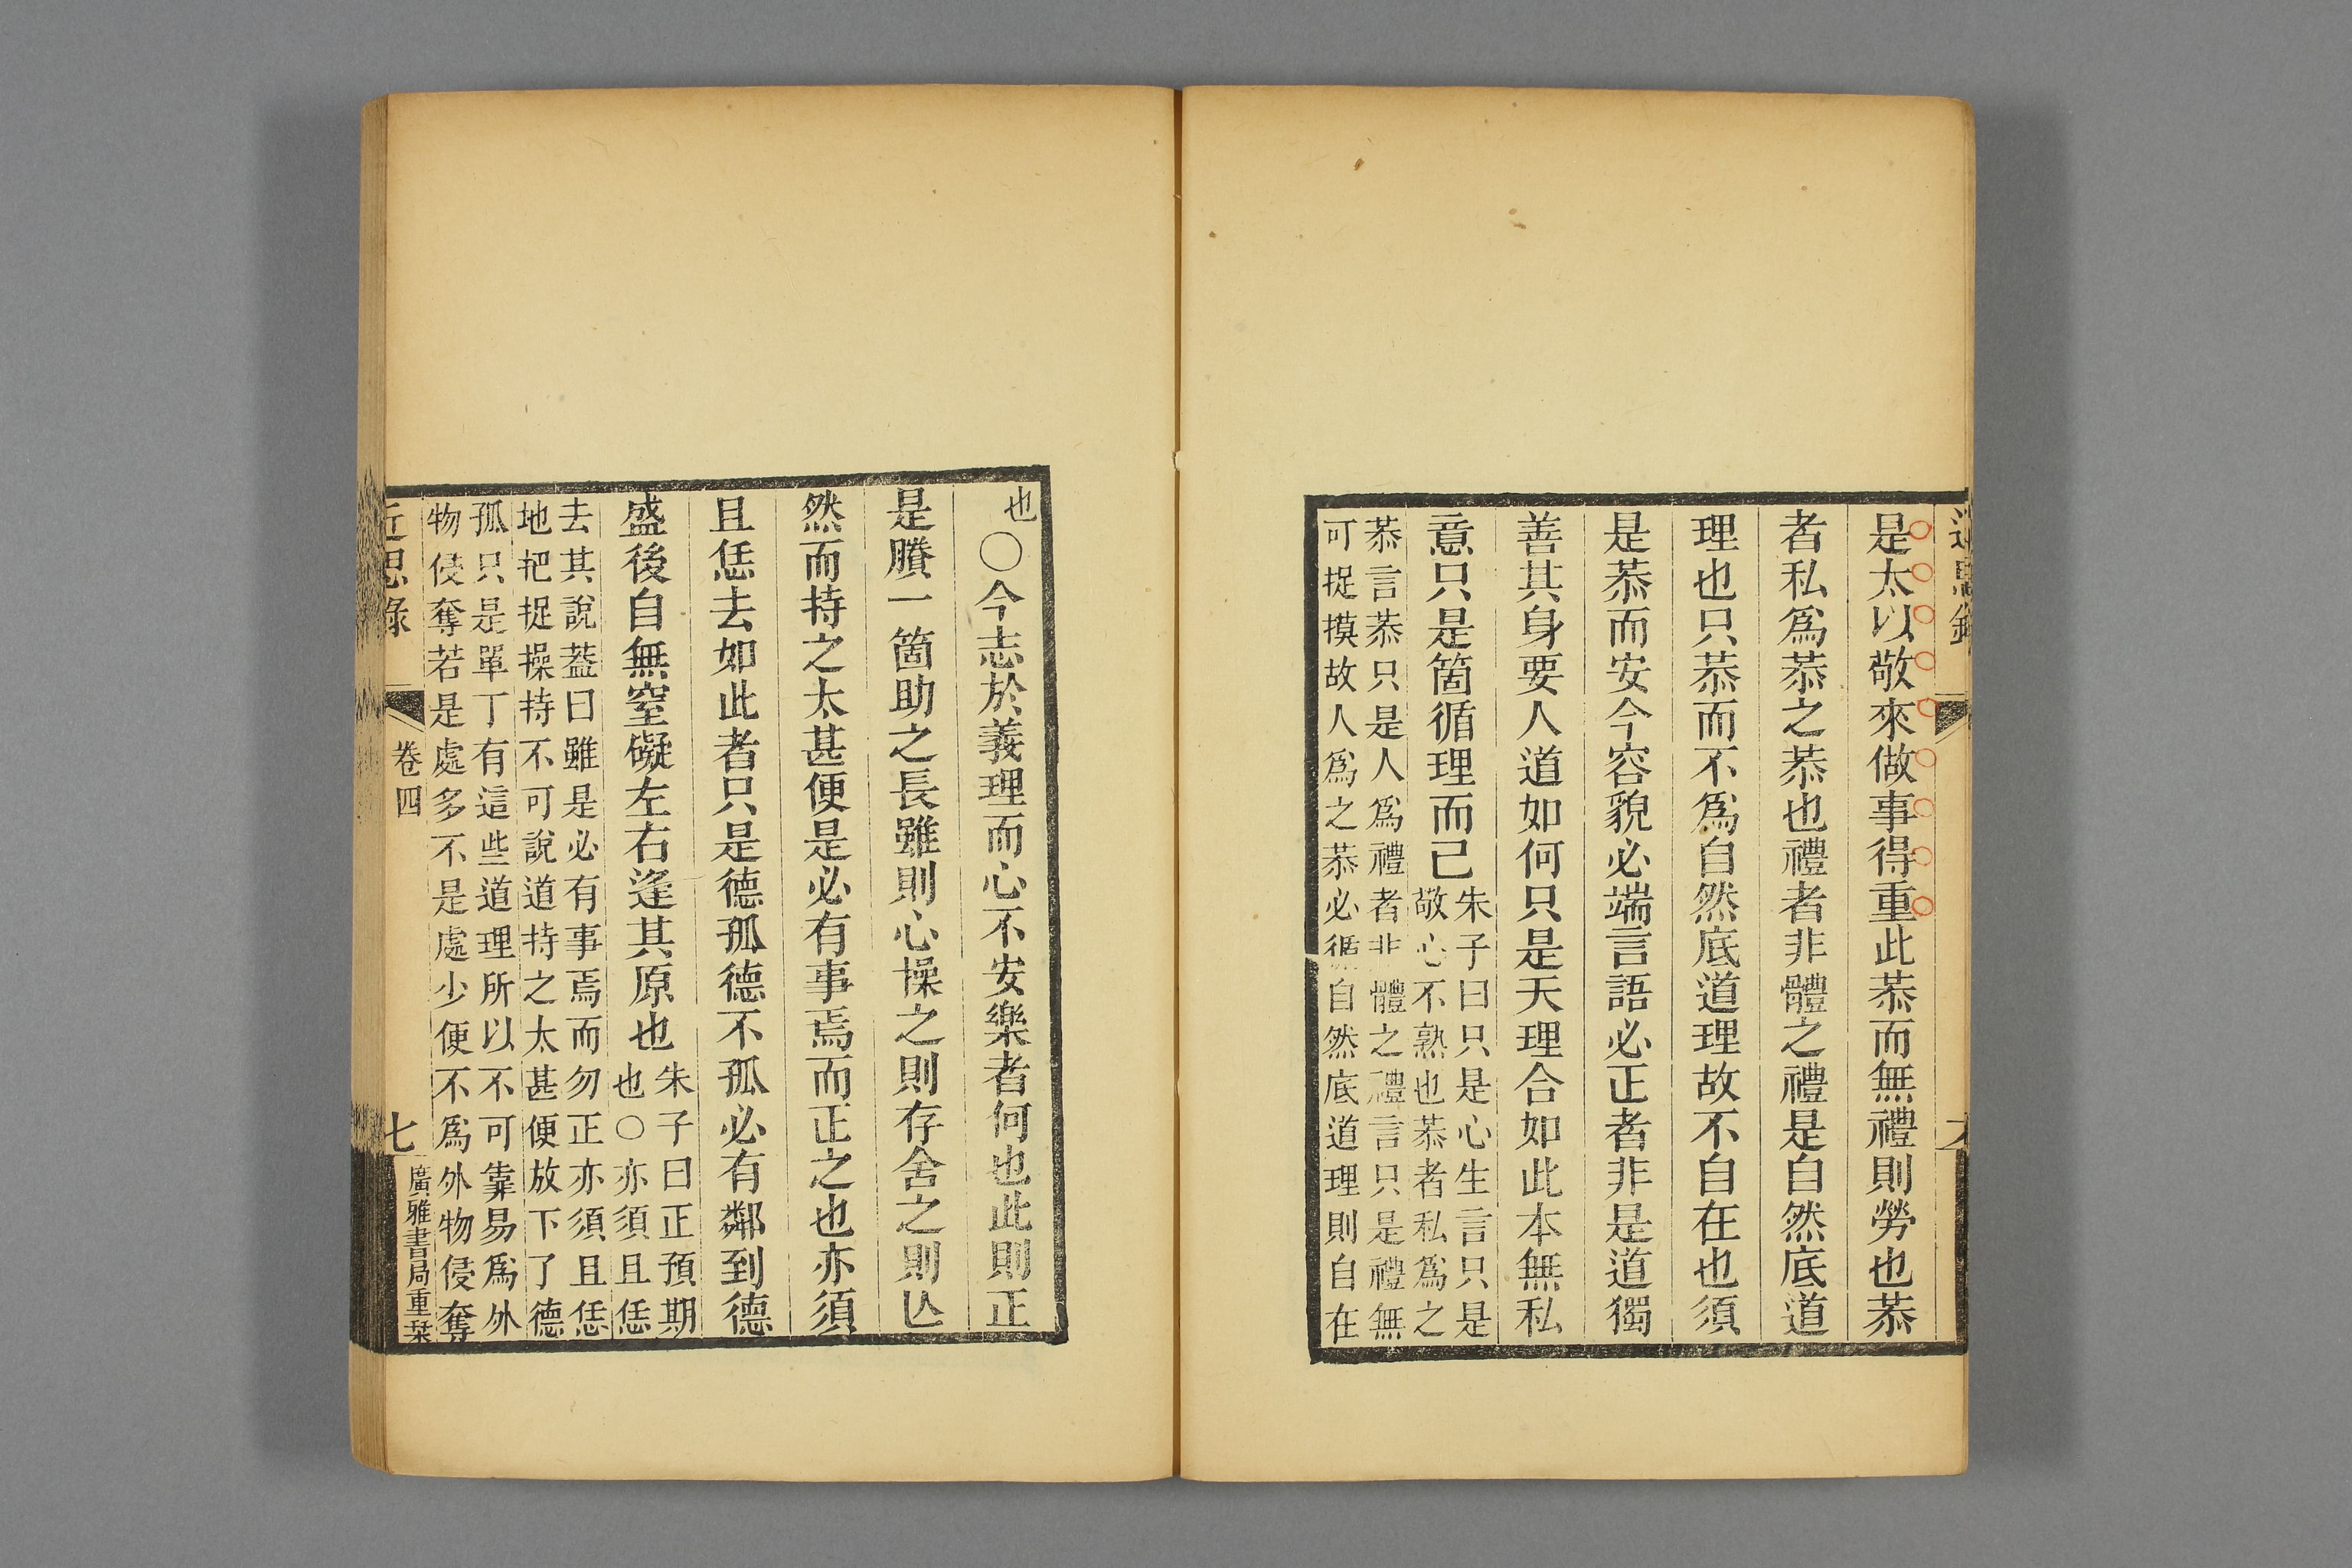 是太以敬來做事得重此恭而無禮則勞也恭
者私爲恭之恭也禮者非體之禮是自然底道
理也只恭而不爲自然底道理故不自在也須
是恭而安今容貌必端言語必正者非是道獨
善其身要人道如何只是天理合如此本無私
意只是箇循理而已朱子曰只是心生言只是
敬心不熟也恭者私爲之
恭言恭只是人爲禮者非體之禮言只是禮無
可捉摸故人爲之恭必循自然底道理則自在
也○今志於義理而心不安樂者何也此則正
是賸一箇助之長雖則心操之則存舍之則亾
然而持之太甚便是必有事焉而正之也亦須
且恁去如此者只是德孤德不孤必有鄰到德
盛後自無窒礙左右逢其原也朱子曰正預期
也○亦須且恁
去其說葢曰雖是必有事焉而勿正亦須且恁
地把捉操持不可說道持之太甚便放下了德
孤只是單丁有這些道理所以不可靠易爲外
物侵奪若是處多不是處少便不爲外物侵奪
近思錄
卷四
七
廣雅書局重栞